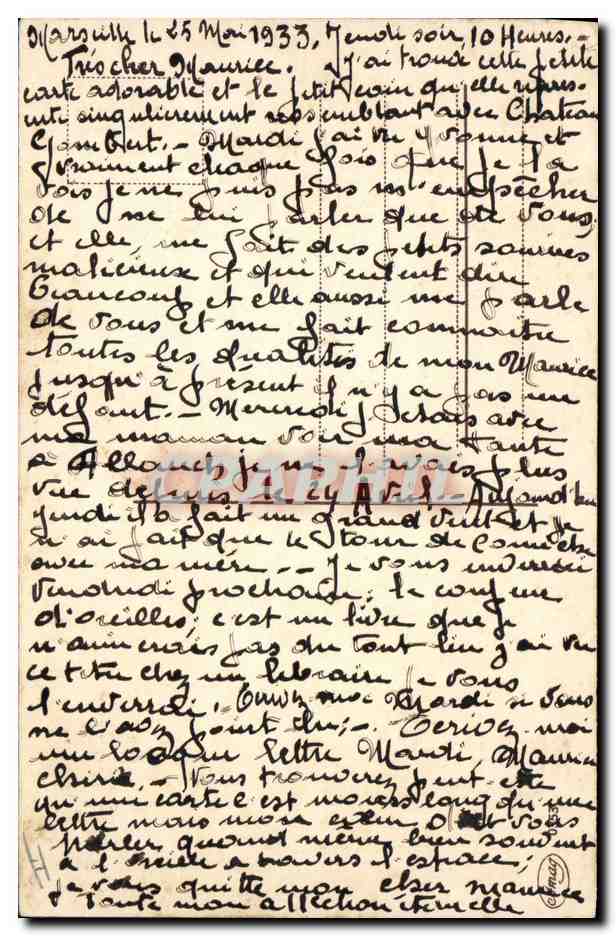 Marseille le 25 Mai 1933, Jeudi soir, 10 Heures.-
Très cher Maurice. J'ai trouvé cette petite
carte adorable et le petit coin qu'elle repres-
ente singulièrement ressemblant avec Chateau
Gombert.- Mardi j'ai vu Yvonne et
vraiment chaque fois que je la
vois je ne puis pas m'empêcher
de ne lui parler que de vous,
et elle, me fait des petits sourires
malicieux et qui veulent dire
beaucoup et elle aussi me parle
de vous et me fait connaitre
toutes les qualités de mon Maurice
jusqu'à présent il n'y a pas un
défaut.- Mercredi j'étais avec
ma maman voir ma tante
à Allauch je ne l'avais plus
vue depuis le Avril. Aujourd'hui
jeudi il a fait un grand vent et je
n'ai fait que le tour de Corniche
avec ma mère.-- Je vous enverrai
Vendredi prochain, le
d'oreilles, c'est un livre que je
n'aimerais pas du tout lire j'ai vu
ce titre chez un libraire je vous
l'enverrai. Ecrivez moi Mardi si vous
ne l'avez point lu;- Ecrivez moi
une longue lettre Mardi, Maurice
chéri.- Vous trouverez peut-être
qu'une carte c'est moins long qu'une
lettre mais mon vous
parler quand même bien souvent
à l'oreille à travers l'espace;
je vous quitte mon cher Maurice
Toute mon affection éternelle
CRAPHIL